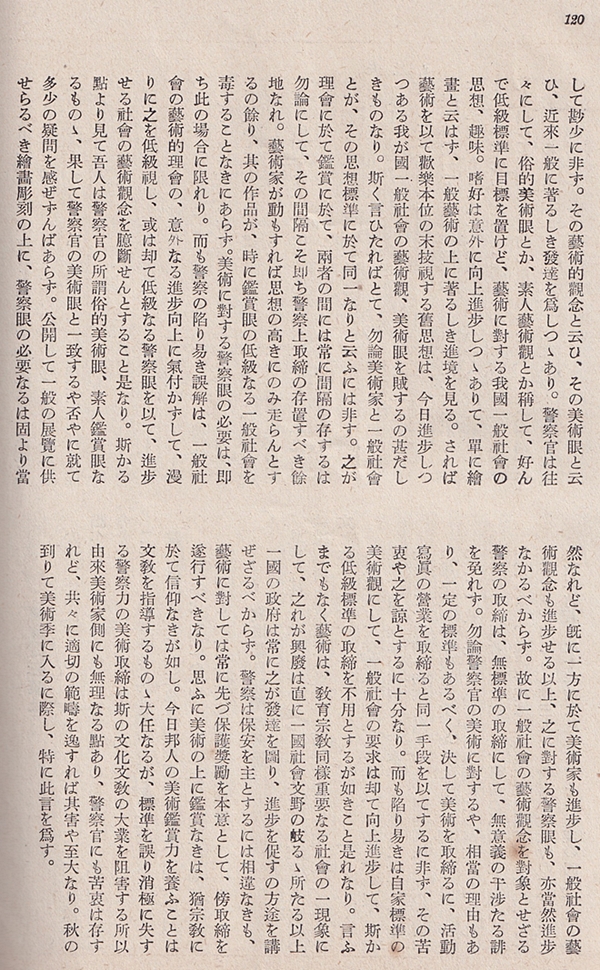 120
して尠少に非ず。その藝術的觀念と云ひ、その美術眼と云
ひ、近來一般に著るしき發達を爲しつゝあり。警察官は往
々にして、俗的美術眼とか、素人藝術觀とか稱して、好ん
で低級標準に目標を置けど、藝術に對する我國一般社會の
思想、趣味。嗜好は意外に向上進步しつゝありて、單に繪
畫と云はず、一般藝術の上に著るしき進境を見る。されば
藝術を以て歡樂本位の末技視する舊思想は、今日進步しつ
つある我が國一般社會の藝術觀、美術眼を賊するの甚だし
きものなり。斯く言ひたればとて、勿論美術家と一般社會
とが、その思想標準に於て同一なりと云ふには非す。之が
理會に於て鑑賞に於て、兩者の間には常に間隔の存するは
勿論にして、その間隔こそ卽ち警察上取締の存置すべき餘
地なれ。藝術家が動もすれば思想の高きにのみ走らんとす
るの餘り、其の作品が、時に鑑賞眼の低級なる一般社會を
毒することなきにあらず。美術に對する警察眼の必要は、卽
ち此の場合に限れり。而も警察の陷り易き誤解は、一般社
會の藝術的理會の、意外なる進步向上に氣付かずして、漫
りに之を低級視し、或は却て低級なる警察眼を以て、進步
せる社會の藝術觀念を臆斷せんとすること是なり。斯かる
點より見て吾人は警察官の所謂俗的美術眼、素人鑑賞眼な
るものゝ、果して警察官の美術眼と一致するや否やに就て
多少の疑問を感ぜずんばあらず。公開して一般の展覽に供
せらるべき繪畫彫刻の上に、警察眼の必要なるは固より當
然なれど、旣に一方に於て美術家も進步し、一般社會の藝
術觀念も進步せる以上、之に對する警察眼も、亦當然進步
なかるべからず。故に一般社會の藝術觀念を對象とせざる
警察の取締は、無標準の取締にして、無意義の干涉たる誹
を免れず。勿論警察官の美術に對するや、相當の理由もあ
り、一定の標準もあるべく、決して美術を取締るに、活動
寫眞の營業を取締ると同一手段を以てするに非ず、その苦
衷や之を諒とするに十分なり。而も陷り易きは自家標準の
美術觀にして、一般社會の要求は却て向上進步して、斯か
る低級標準の取締を不用とするが如きこと是れなり。言ふ
までもなく藝術は、敎育宗敎同樣重要なる社會の一現象に
して、之れが興廢は直に一國社會文野の岐るゝ所たる以上
一國の政府は常に之が發達を圖り、進步を促すの方途を講
ぜざるべからず。警察は保安を主とするには相違なきも、
藝術に對しては常に先づ保護奬勵を本意として、傍取締を
遂行すべきなり。思ふに美術の上に鑑賞なきは、猶宗敎に
於て信仰なきが如し。今日邦人の美術鑑賞力を養ふことは
文敎を指導するものゝ大任なるが、標準を誤り消極に失す
る警察力の美術取締は斯の文化文敎の大業を阻害する所以
由來美術家側にも無理なる點あり、警察官にも苦衷は存す
れど、共々に適切の範疇を逸すれば其害や至大なり。秋の
到りて美術季に入るに際し、特に此言を爲す。